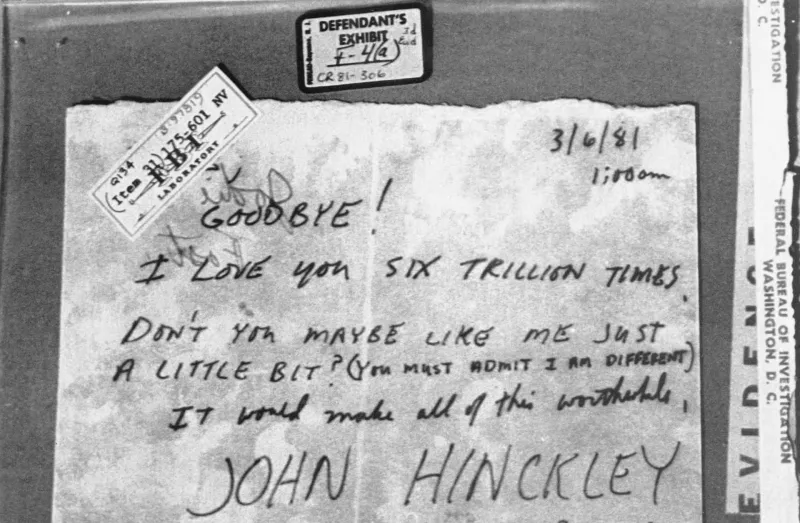 DEFENDANT'S
EXHIBIT
F-4(a)
Id
Evd
CR 81-306
Q134
(Item 31) 175-601 NV
FBI
LABORATORY
3/6/81
1:00am
GOODBYE!
I LOVE you SIX TRILLION TIMES.
DON'T YOU MAYBE LIKE ME JUST
A LITTLE BIT? (You MUST ADMIT I AM DIFFERENT)
IT would make all of this worthwhile.
JOHN HINCKLEY
EVIDENCE
FEDERAL BUREAU OF INVESTIGATION
WASHINGTON, D. C.
ESTIGATION
D. C.